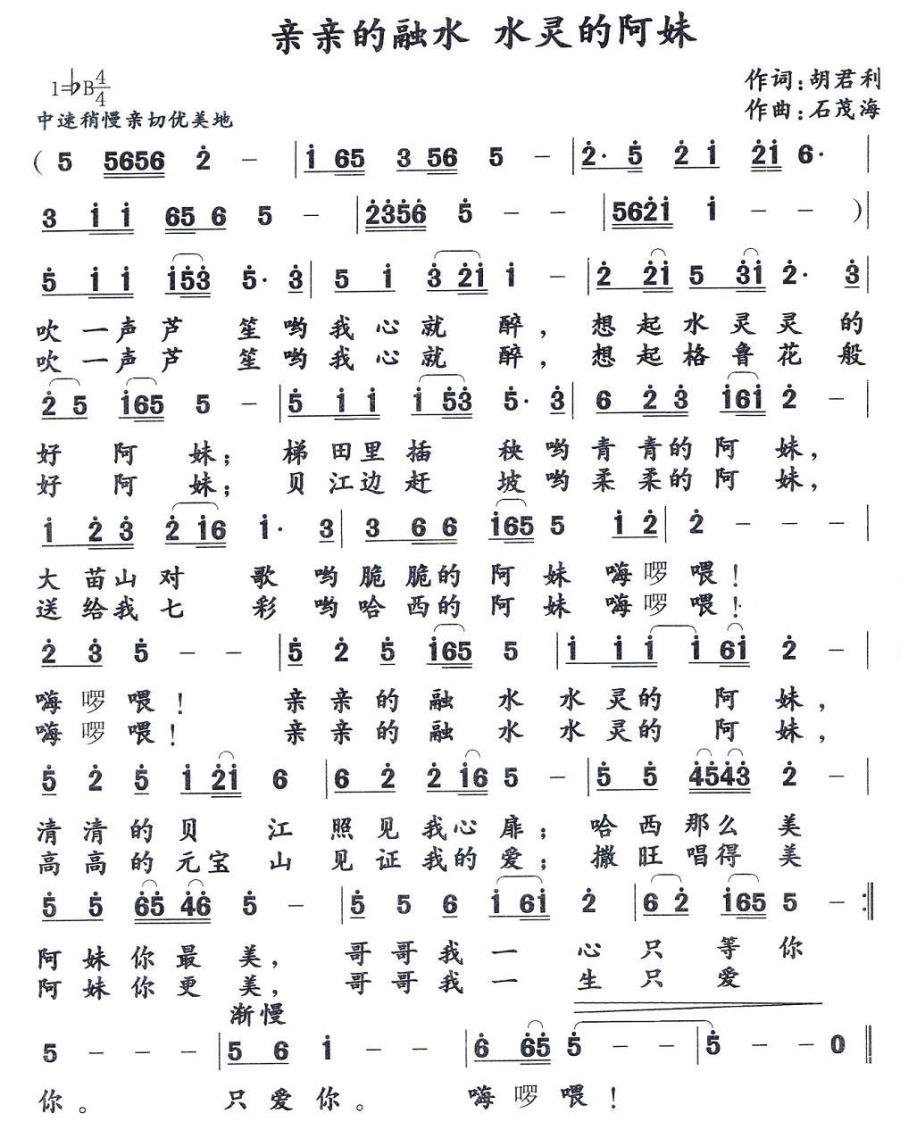 亲亲的融水 水灵的阿妹
1=♭B 4/4
作词:胡君利
中速稍慢亲切优美地
作曲:石茂海
( 5 5656 2̇ － | i̇ 65 3 56 5 － | 2̇· 5̇ 2̇ i̇ 2̇i̇ 6· |
3 i̇ i̇ 65 6 5 － | 2̇3̇5̇6̇ 5̇ － － | 562̇i̇ i̇ － － ) |
5̇ i̇ i̇ i̇5̇3̇ 5̇· 3̇ | 5 i̇ 3̇ 2̇i̇ i̇ － | 2̇ 2̇i̇ 5 3̇i̇ 2̇· 3̇ |
吹一声芦 笙哟我心就 醉, 想起水灵灵的
吹一声芦 笙哟我心就 醉, 想起格鲁花般
2̇ 5 i̇65 5 － | 5̇ i̇ i̇ i̇ 5̇3̇ 5̇· 3̇ | 6 2̇ 3̇ i̇6i̇ 2̇ － |
好 阿 妹; 梯田里插 秧哟青青的阿 妹,
好 阿 妹; 贝江边赶 坡哟柔柔的阿 妹,
i̇ 2̇ 3̇ 2̇ i̇6 i̇· 3 | 3 6 6 i̇65 5 i̇ 2̇ | 2̇ － － － |
大苗山对 歌 哟脆脆的 阿 妹 嗨啰喂!
送给我七 彩 哟哈西的 阿 妹 嗨啰喂!
2̇ 3̇ 5̇ － － | 5̇ 2̇ 5̇ i̇65 5 | i̇ i̇ i̇ i̇ 6i̇ 2̇ － |
嗨啰喂! 亲亲的 融 水 水灵的 阿 妹,
嗨啰喂! 亲亲的 融 水 水灵的 阿 妹,
5̇ 2̇ 5̇ i̇ 2̇i̇ 6 | 6 2̇ 2̇ i̇6 5 － | 5̇ 5̇ 4̇5̇4̇3̇ 2̇ － |
清清的贝 江 照见我心扉; 哈西那么 美
高高的元宝 山 见证我的爱; 撒旺唱得 美
5̇ 5̇ 6̇5̇ 4̇6̇ 5̇ － | 5̇ 5 6 i̇ 6i̇ 2̇ | 6 2̇ i̇65 5 － :‖
阿妹你最 美, 哥哥我一 心只 等你
阿妹你更 美, 哥哥我一 生只 爱
渐慢
5 － － － | 5 6 i̇ － － | 6̇ 6̇5̇ 5̇ － － | 5̇ － － 0 ‖
你。 只爱你。 嗨啰喂!